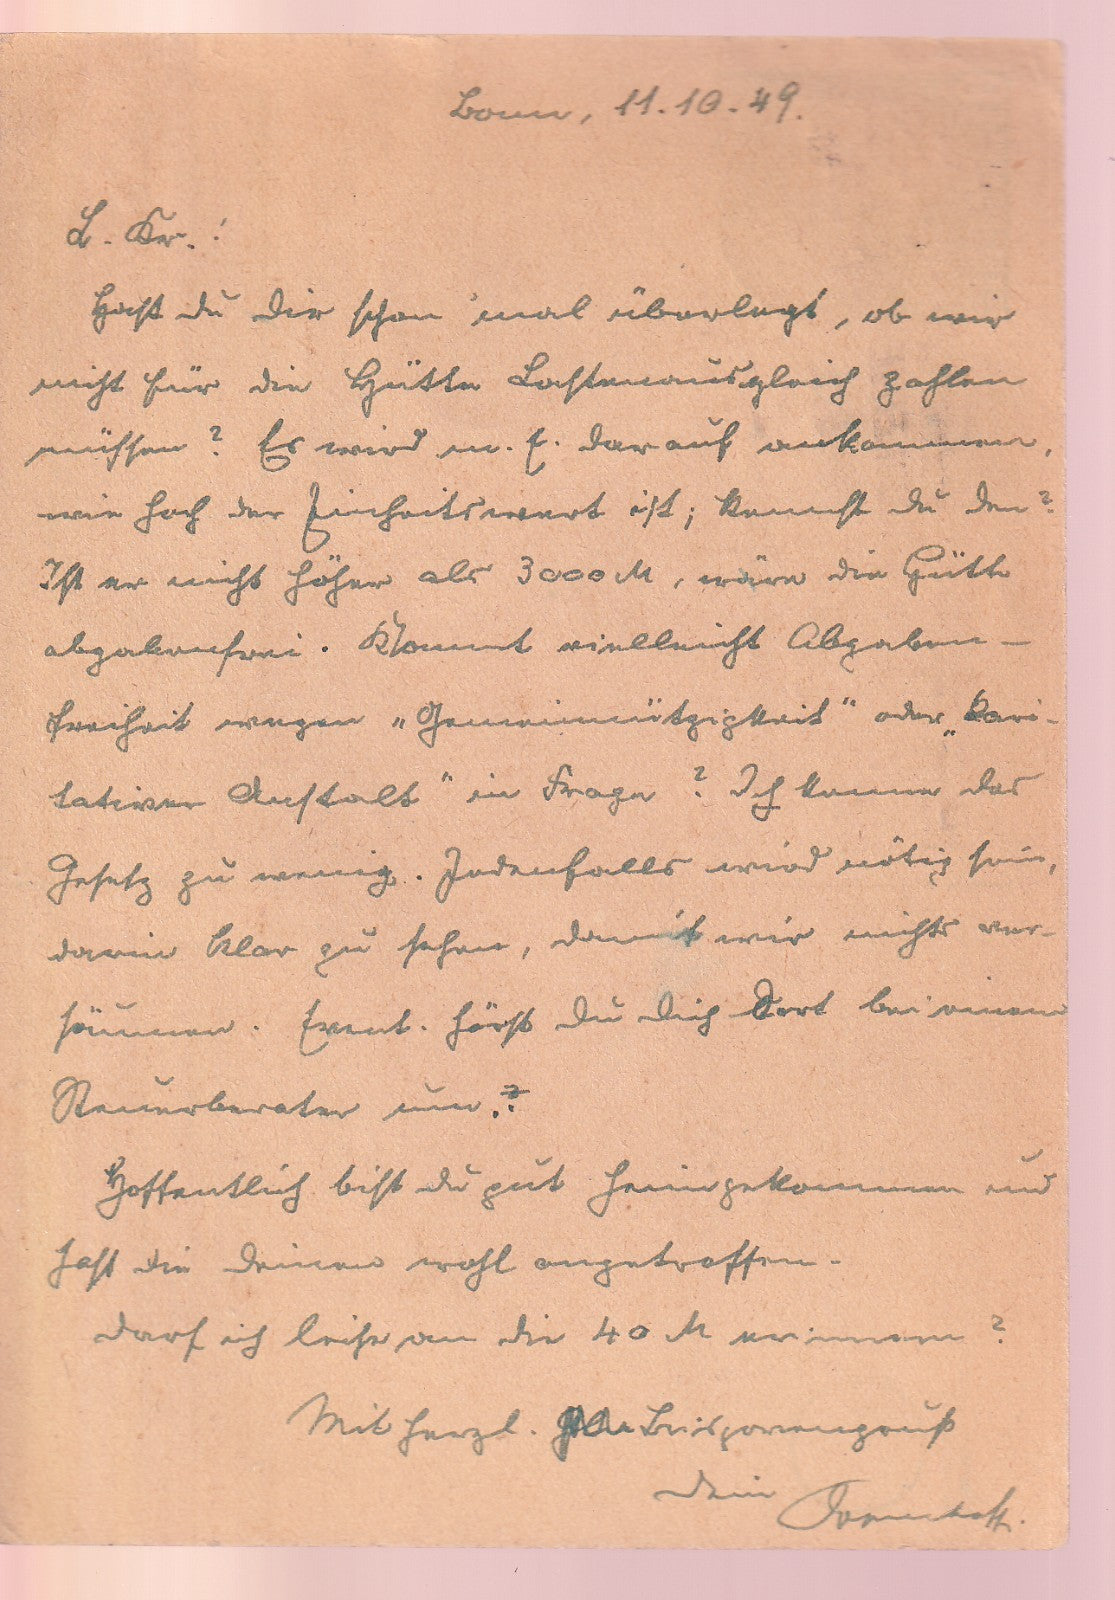 Bonn, 11.10.49.
L. Kr.!
Hast du dir schon mal überlegt, ob wir
nicht für die Hütte Lastenausgleich zahlen
müssen? Es wird m. E. darauf ankommen,
wie hoch der Einheitswert ist; kennst du den?
Ist er nicht höher als 3000 M, wäre die Hütte
abgabenfrei. Kommt vielleicht Abgaben-
freiheit wegen „Gemeinnützigkeit“ oder „Kari-
tativer Anstalt“ in Frage? Ich kenne das
Gesetz zu wenig. Jedenfalls wird nötig sein,
darin klar zu sehen, damit wir nichts ver-
säumen. Event. hörst du dich dort bei einem
Steuerberater um.?
Hoffentlich bist du gut heimgekommen und
hast die Deinen wohl angetroffen.
Darf ich leise an die 40 M erinnern?
Mit herzl.
Dein